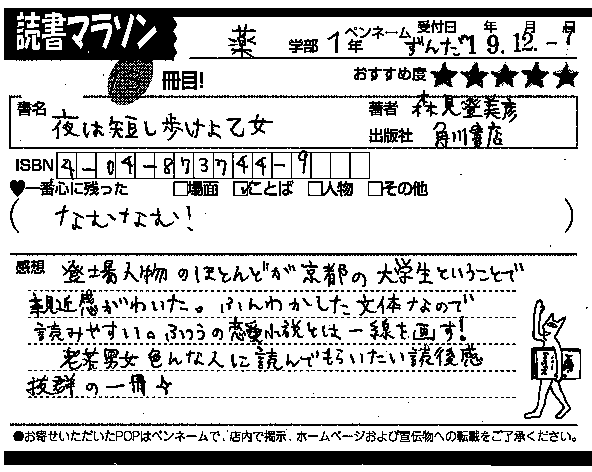 読書マラソン
薬 学部 1年 ペンネーム ずんだ 受付日 19年12月-7日
冊目!
おすすめ度 ★★★★★
書名 夜は短し歩けよ乙女
著者 森見登美彦
出版社 角川書店
ISBN 4-04-873744-9
♥一番心に残った □場面 ☑ことば □人物 □その他
(なむなむ!)
感想 登場人物のほとんどが京都の大学生ということで
親近感がわいた。ふんわかした文体なので
読みやすい。ふつうの恋愛小説とは一線を画す!
老若男女色んな人に読んでもらいたい読後感
抜群の一冊
●お寄せいただいたPOPはペンネームで、店内で掲示、ホームページおよび宣伝物への転載をご了承ください。